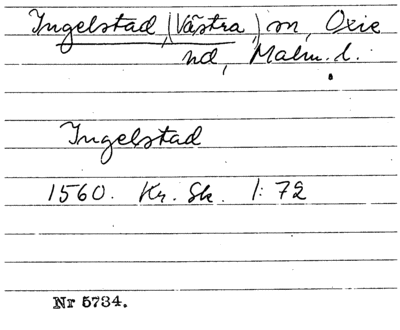 Ingelstad, (Västra) sn, Oxie
hd, Malm. l.
Ingelstad
1560. Kr. Sk. 1:72
Nr 5734.